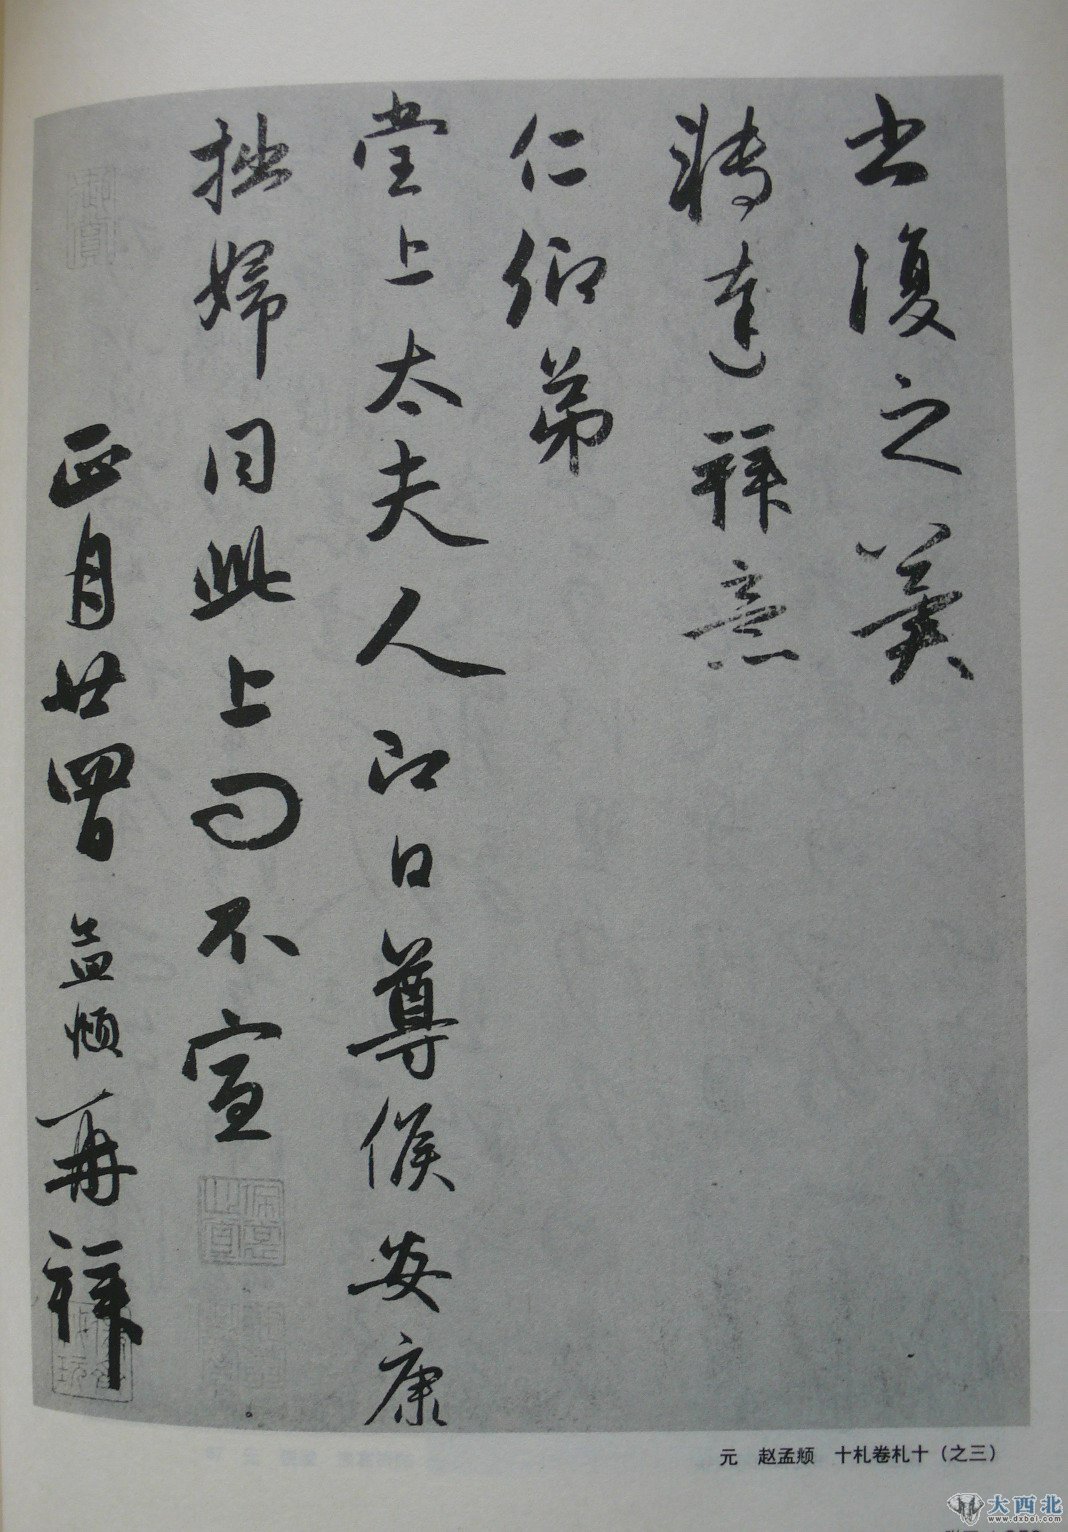 书復之冀
轉達拜意
仁仰弟
堂上太夫人即日尊候安康
拙婦同此上問不宣
正月廿四日 孟頫再拜
元 赵孟頫 十札卷札十（之三）
大西北
www.dxbei.com